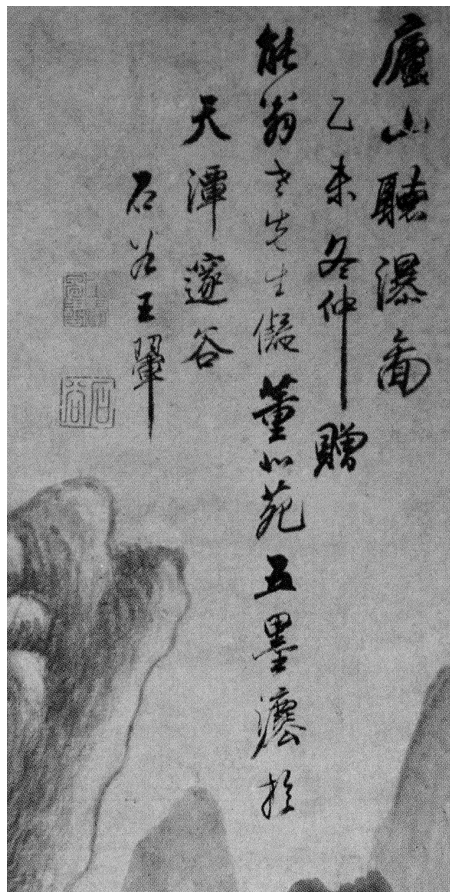 廬山聽瀑圖
乙未冬仲贈
能翁老先生倣董北苑五墨灋扵
天潭邃谷
石谷王翬
石谷